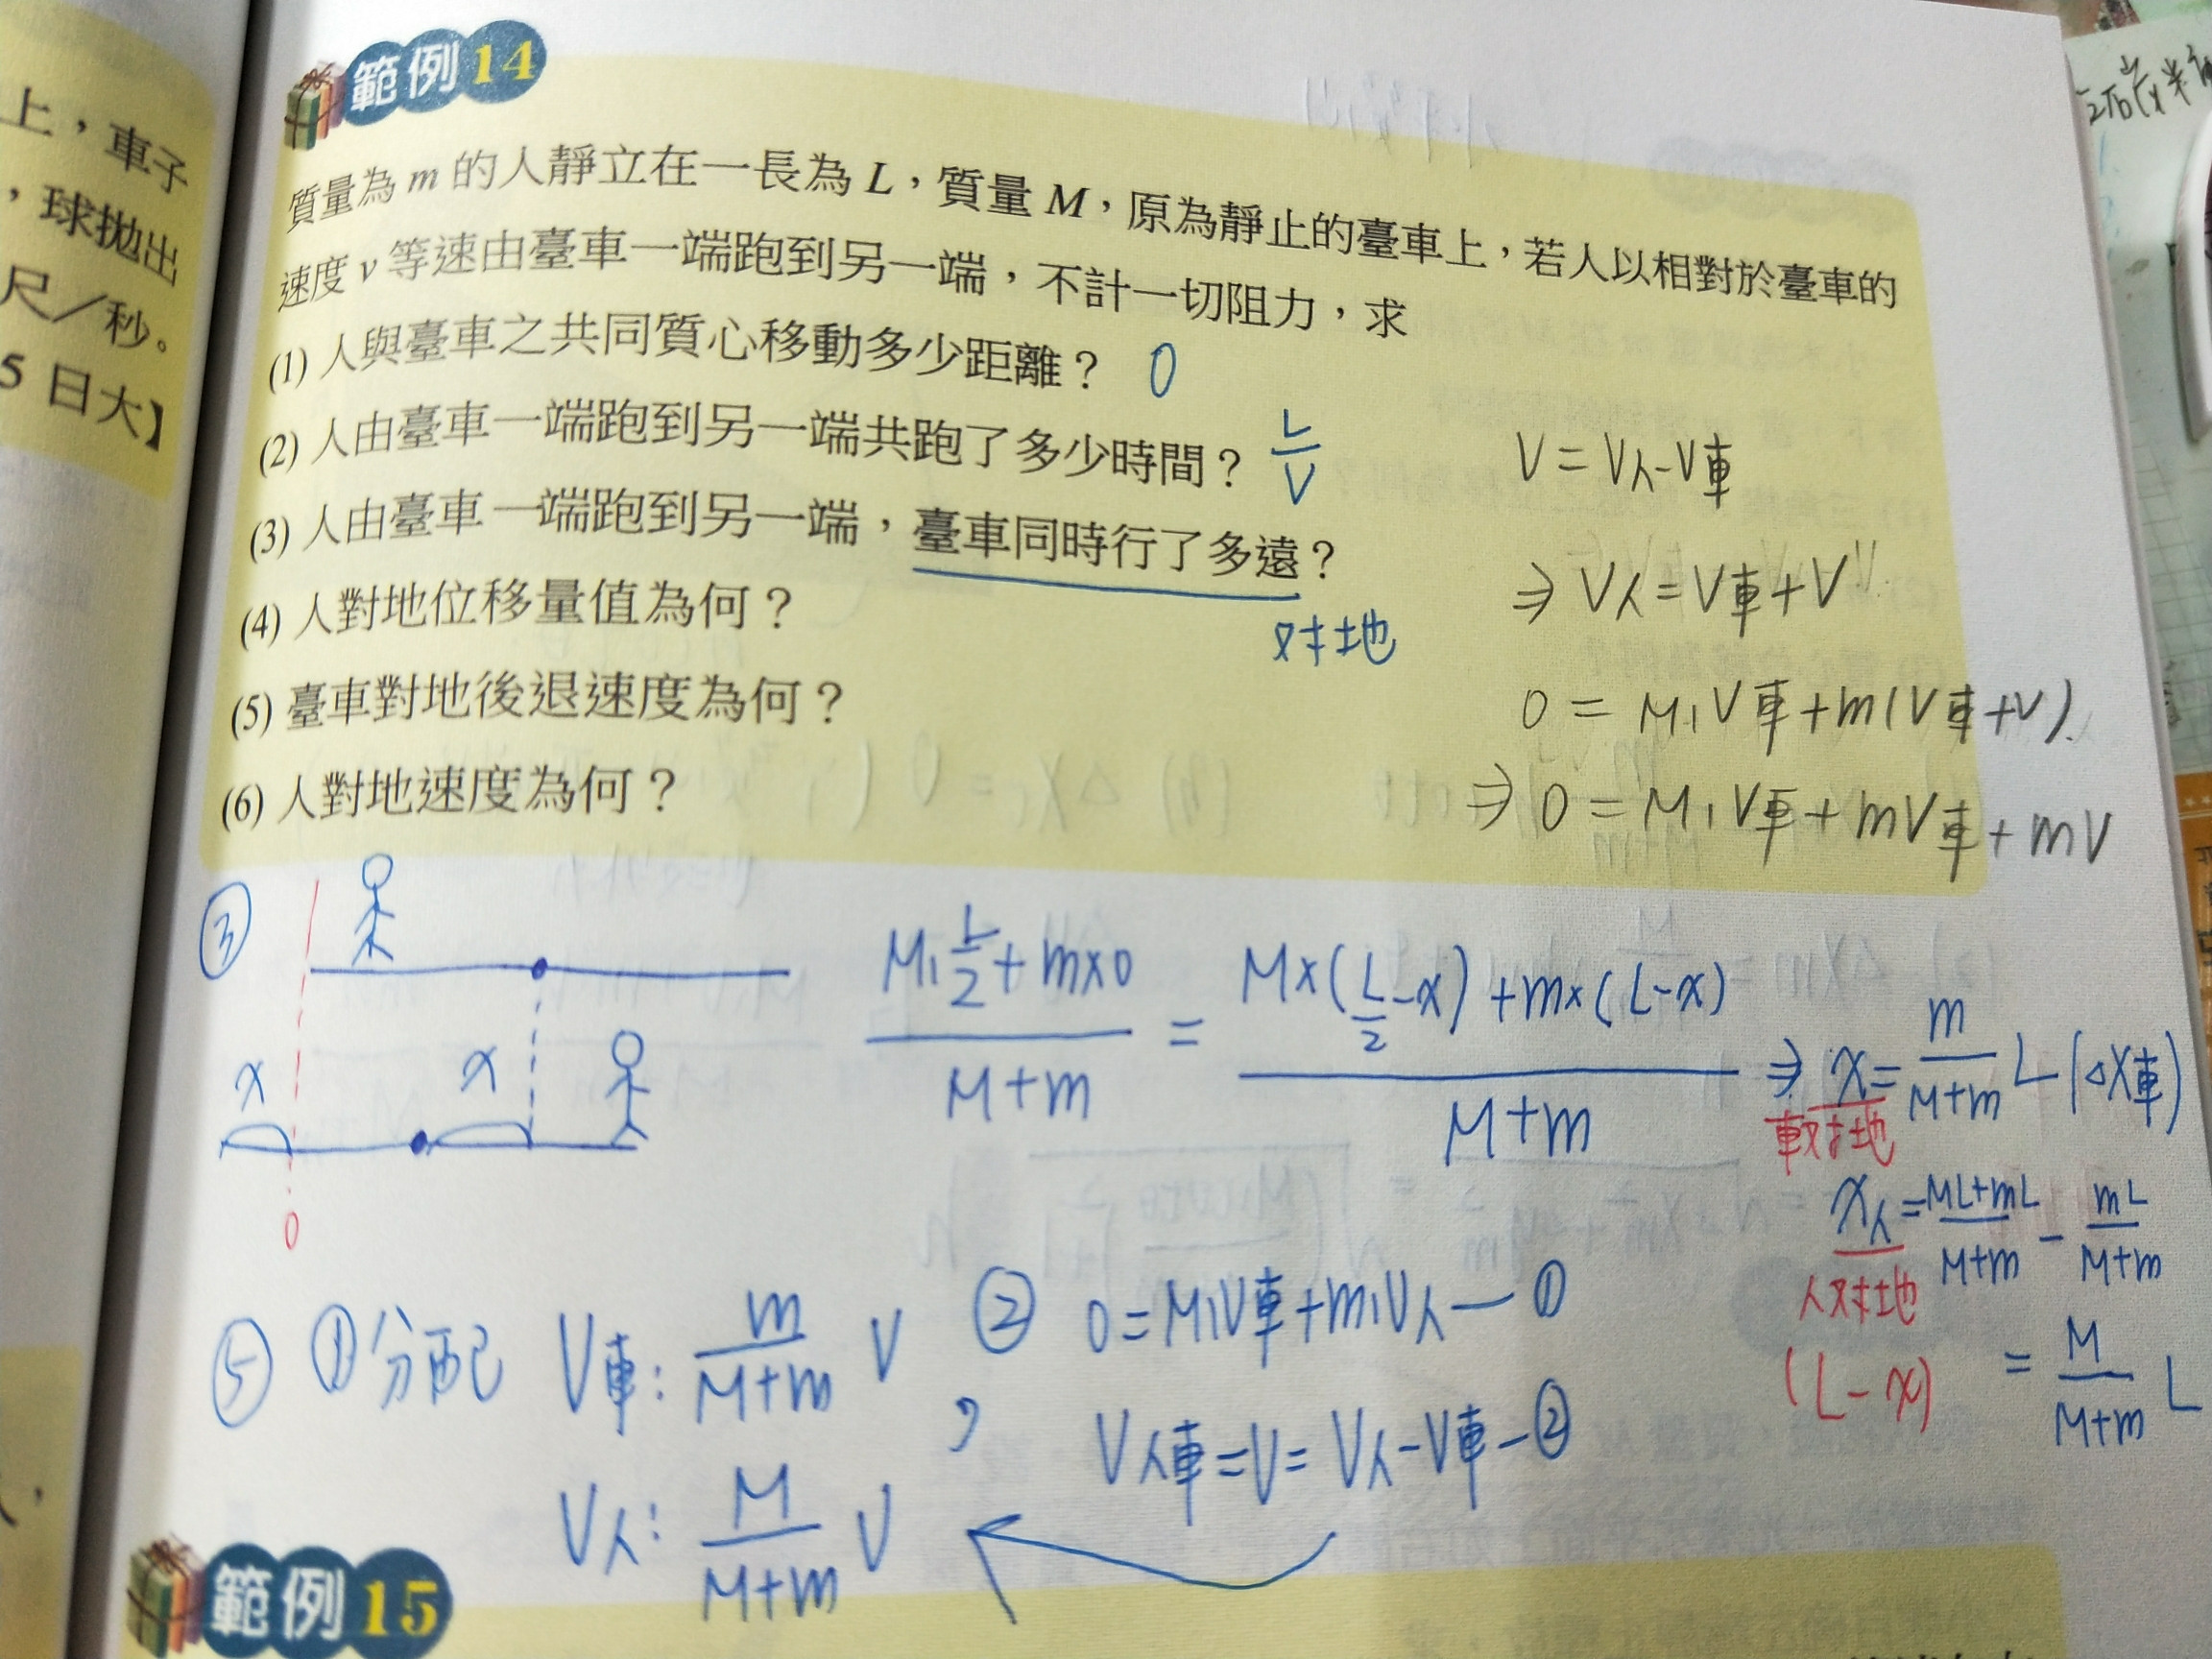 上，車子
，球拋出
尺／秒。
5 日大】
範例 14
質量為 m 的人靜立在一長為 L，質量 M，原為靜止的臺車上，若人以相對於臺車的
速度 v 等速由臺車一端跑到另一端，不計一切阻力，求
(1) 人與臺車之共同質心移動多少距離？ 0
(2) 人由臺車一端跑到另一端共跑了多少時間？ L/V
(3) 人由臺車一端跑到另一端，臺車同時行了多遠？
对地
(4) 人對地位移量值為何？
(5) 臺車對地後退速度為何？
(6) 人對地速度為何？
V = V人 - V車
⇒ V人 = V車 + V
0 = M1V車 + m(V車 + V)
⇒ 0 = M1V車 + mV車 + mV
③
x x
0
(M1 L/2 + m×0)/(M+m) = (M×(L/2 - x) + m×(L-x))/(M+m) ⇒ x = m/(M+m) L (△X車)
車对地
x人 = (ML+mL)/(M+m) - mL/(M+m)
人对地
(L-x) = M/(M+m) L
⑤ ①分配 V車: m/(M+m) V ,
V人: M/(M+m) V
② 0 = M1V車 + m1V人 — ①
V人車 = V = V人 - V車 - ②
範例 15